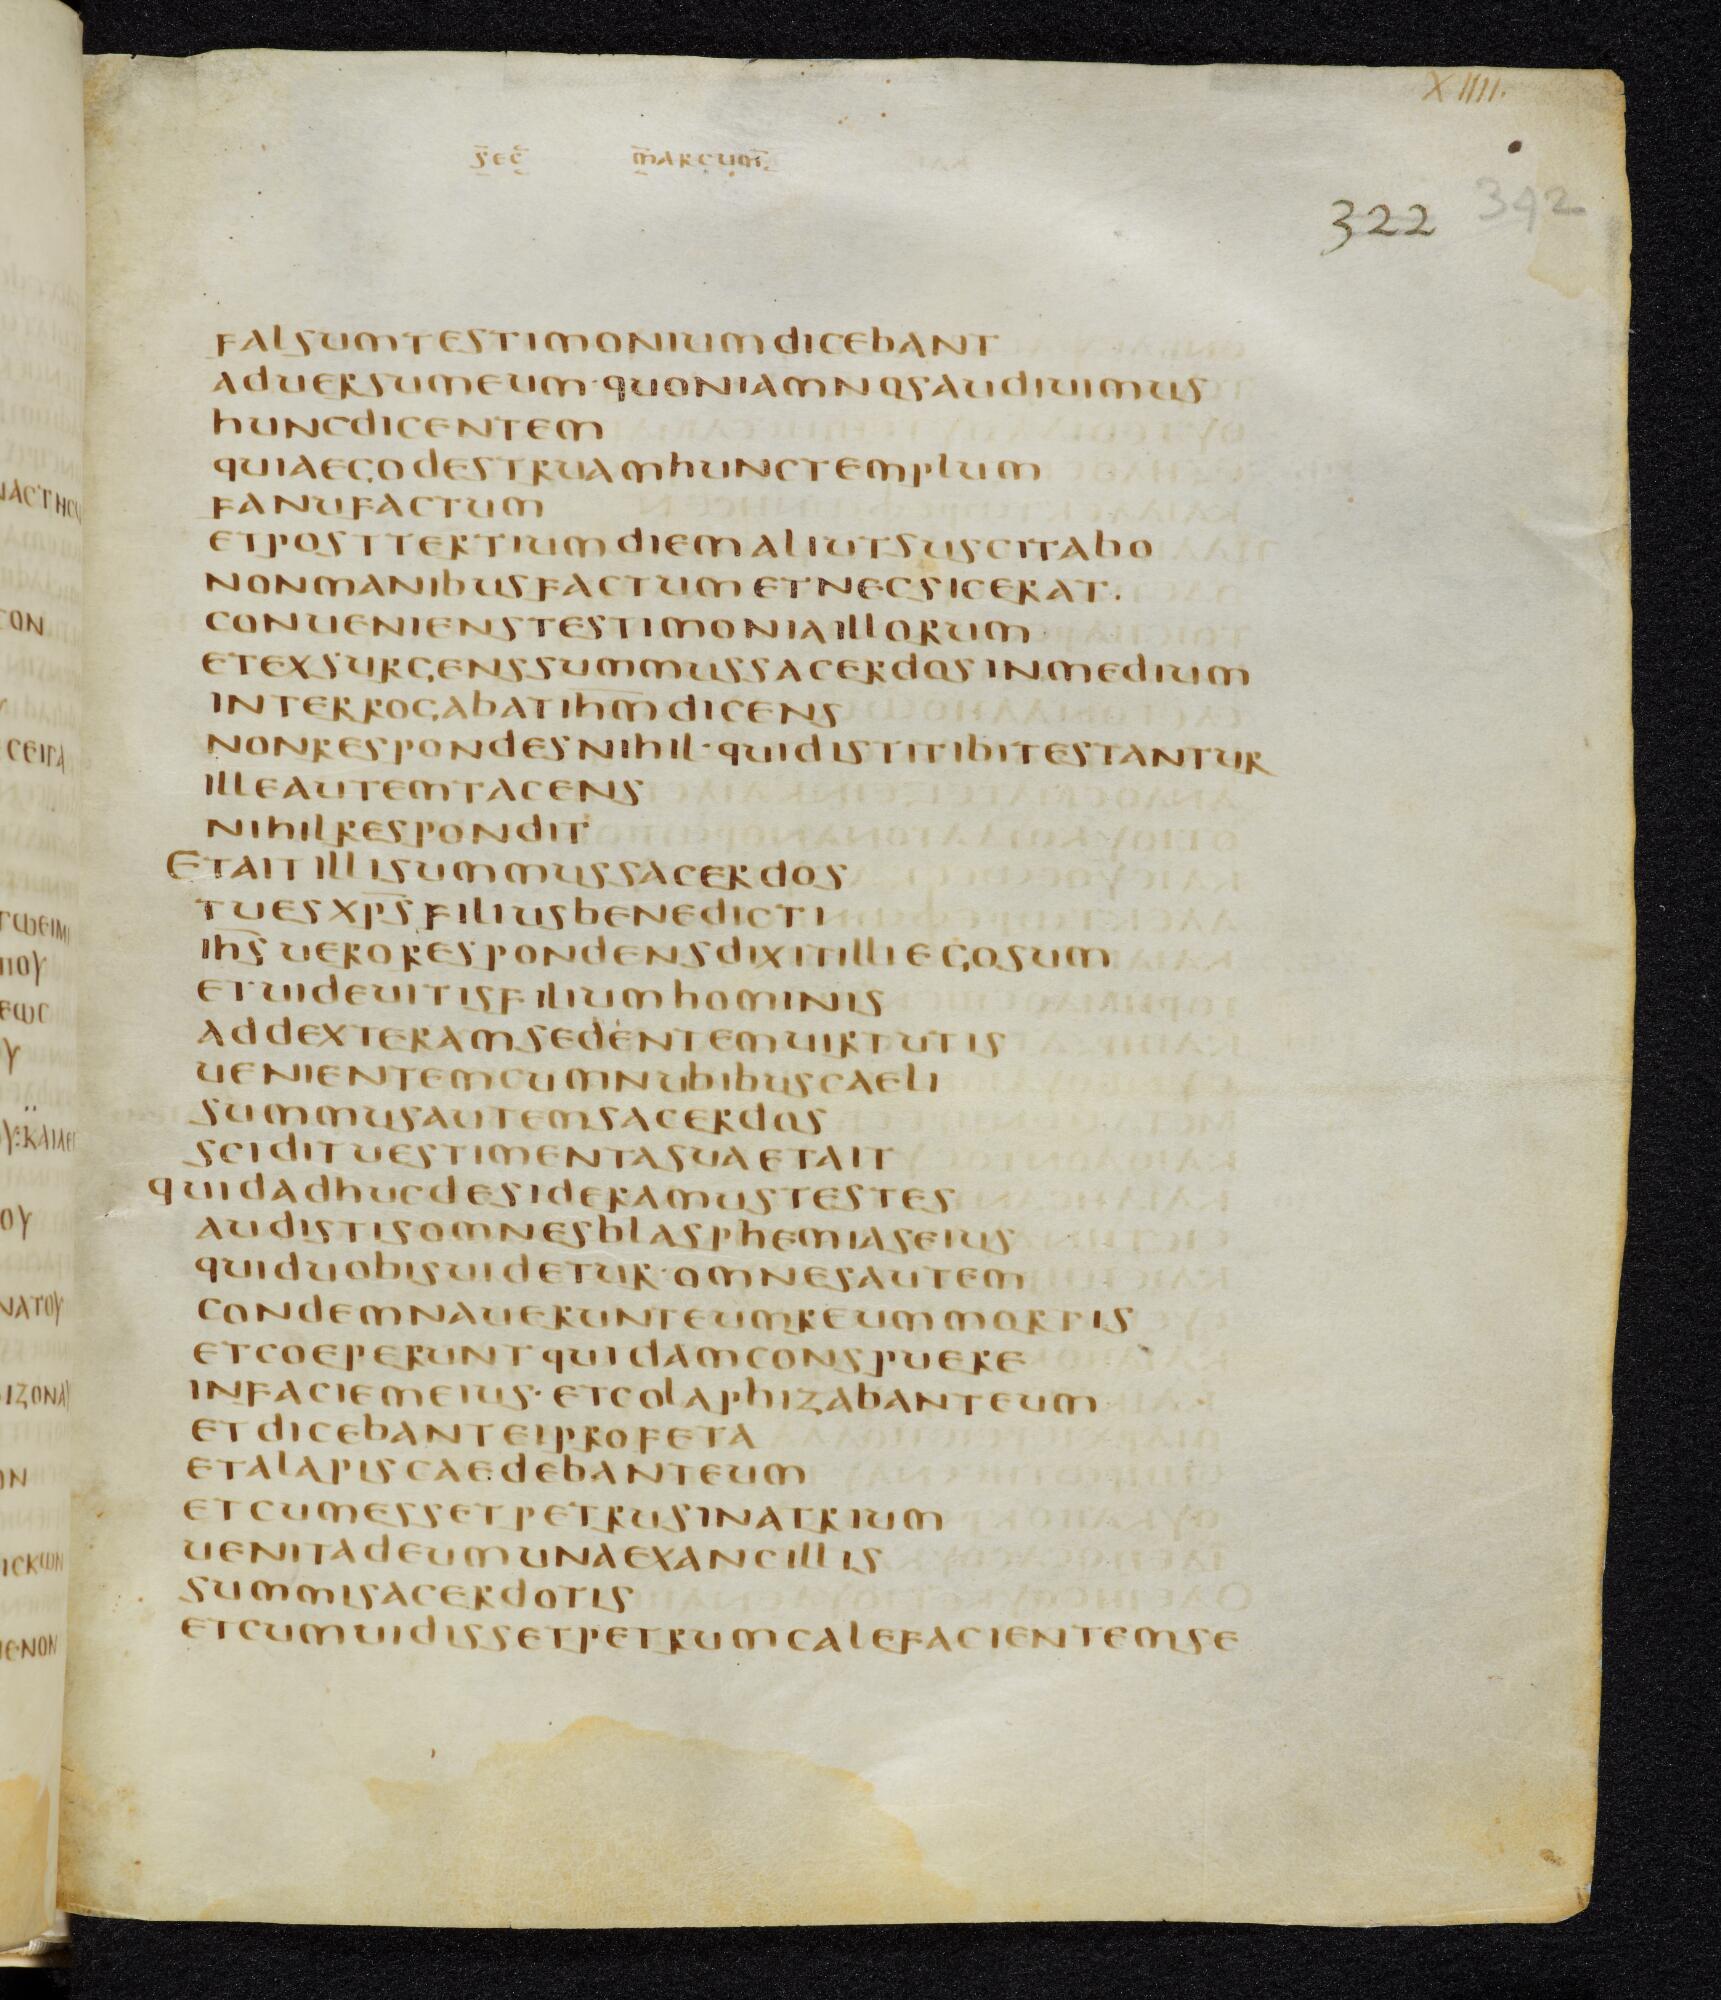 XIIII.
s̅ec̅ m̅arcum̅
322 342
falsumtestimoniumdicebant
aduersumeum·quoniamnosaudiuimus
huncdicentem
quiaegodestruamhunctemplum
fanufactum
etposttertiumdiemaliutsuscitabo
nonmanibusfactumetnecsicerat.
conuenienstestimoniaillorum
etexsurgenssummussacerdosinmedium
interrogabatih̅m̅dicens
nonrespondesnihil·quidistitibitestantur
illeautemtacens
nihilrespondit
Etaitillisummussacerdos
tuesxp̅s̅filiusbenedicti
ih̅s̅uerorespondensdixitilliegosum
etuideuitisfiliumhominis
addexteramsedentemuirtutis
uenientemcumnubibuscaeli
summusautemsacerdos
sciditvestimentasuaetait
quidadhucdesideramustestes
audistisomnesblasphemiaseius
quiduobisuidetur·omnesautem
condemnauerunteumreummortis
etcoeperuntquidamconspuere
infaciemeius·etcolaphizabanteum
etdicebanteiprofeta
etalapiscaedebanteum
etcumessetpetrusinatrium
uenitadeumunaexancillis
summisacerdotis
etcumuidissetpetrumcalefacientemse